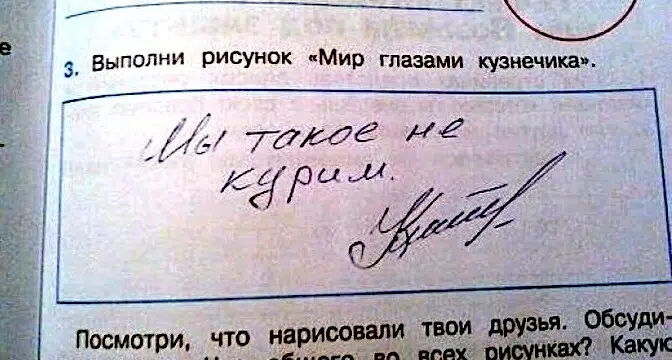 е
3. Выполни рисунок «Мир глазами кузнечика».
Мы такое не
курим.
Посмотри, что нарисовали твои друзья. Обсуди-
общего во всех рисунках? Какую